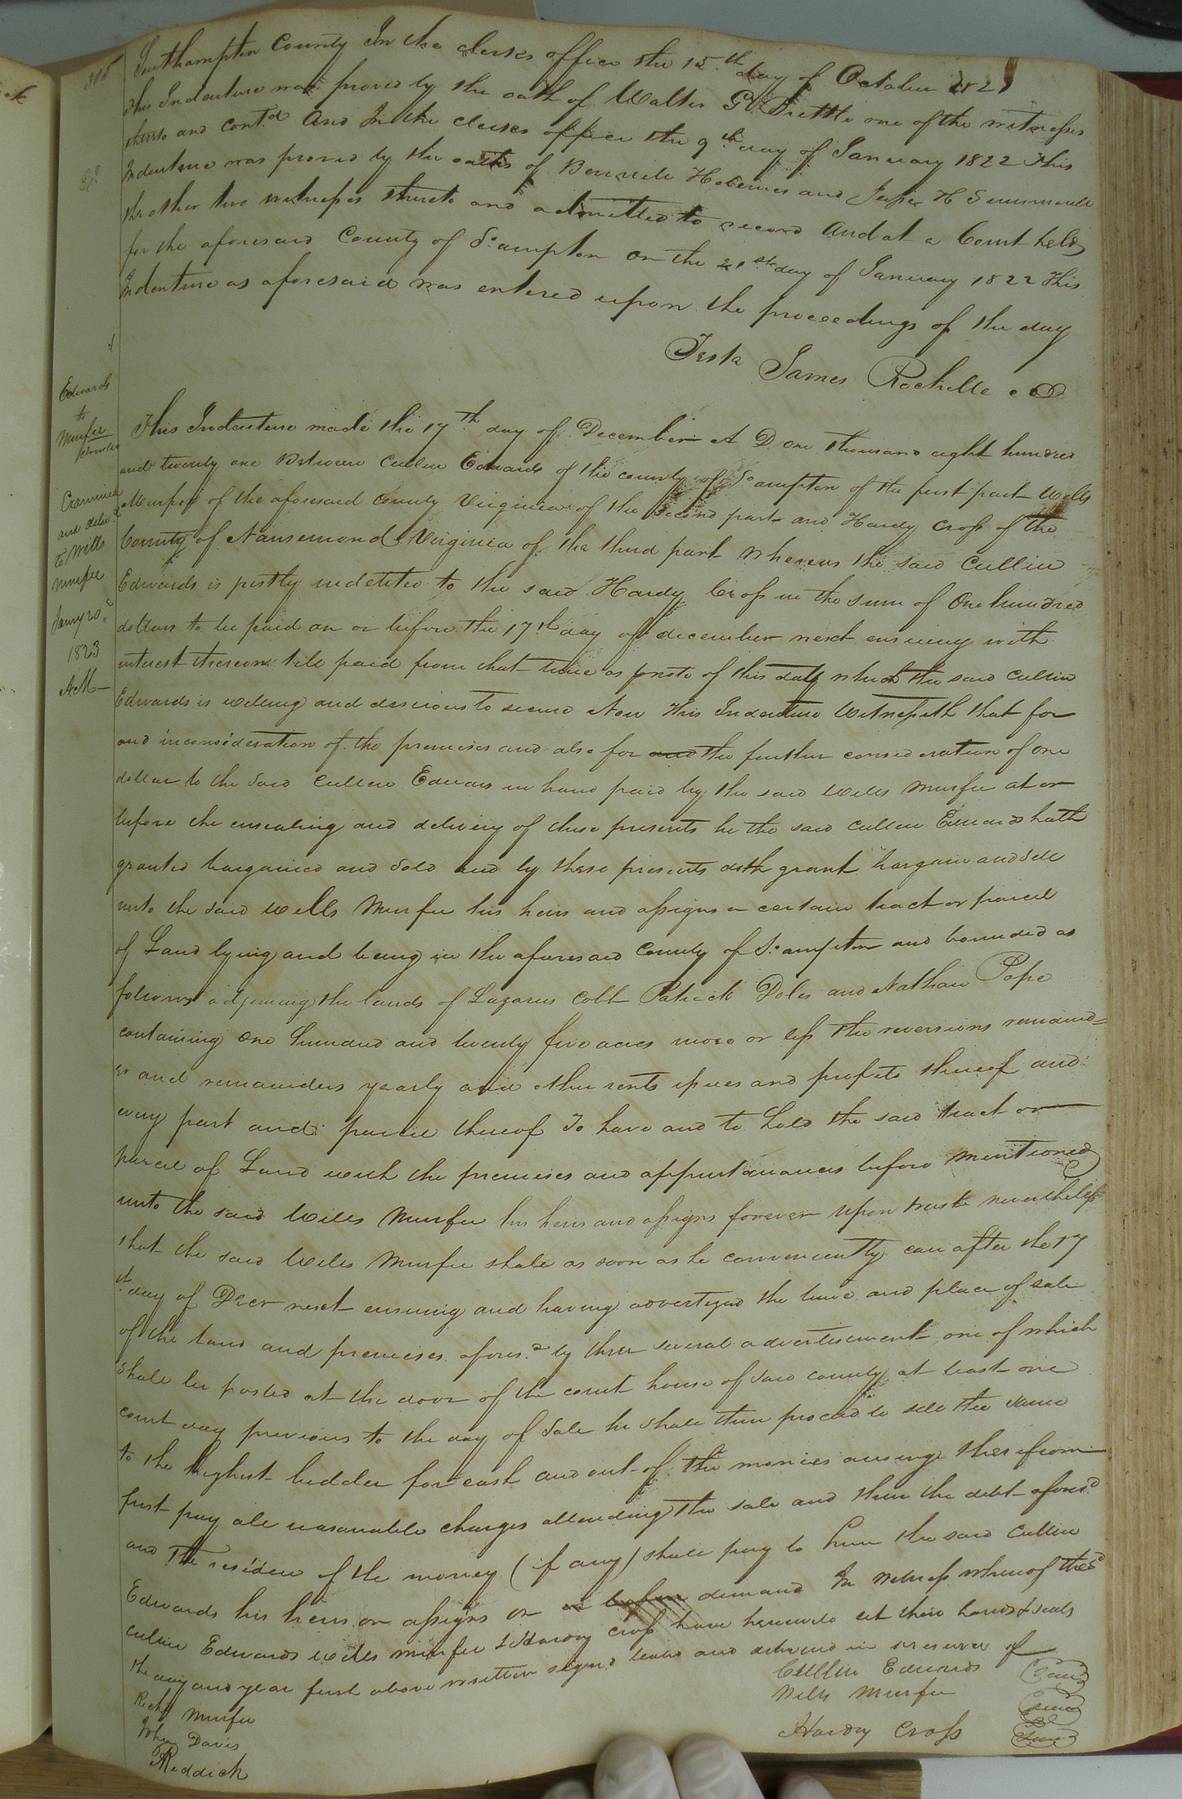 305
Southampton County In the clerks office the 15th day of October 1821
This Indenture was proved by the oath of Walter G Prettlo one of the witnesses
thereto and contd And In the clerks office the 9th day of January 1822 This
Indenture was proved by the oaths of and H
the other two witnesses thereto and admitted to record And at a Court held
for the aforesaid County of So ampton on the 21st day of January 1822 This
Indenture as aforesaid was entered upon the proceedings of the day
Teste James Rochelle
Edwards
to
Murfee
Examined
and deld
to Wills
Murfee
Jany 20
1823
This Indenture made the 17th day of December A D one thousand eight hundred
and twenty one Between Cullin Edwards of the county of So ampton of the first part Wills
Murfee of the aforesaid County Virginia of the second part and Hardy Cross of the
County of Nansemond Virginia of the third part whereas the said Cullin
Edwards is justly indebted to the said Hardy Cross in the sum of One hundred
dollars to be paid on or before the 17th day of december next ensuing with
interest thereon till paid from that time as of this date which the said Cullin
Edwards is willing and desirous to secure Now this Indenture Witnesseth that for
and in consideration of the premises and also for and the further consideration of one
dollar to the said Cullin Edwards in hand paid by the said Wills Murfee at or
before the ensealing and delivery of these presents he the said Cullin Edwards hath
granted bargained and sold and by these presents doth grant bargain and sell
unto the said Wills Murfee his heirs and assigns a certain tract or parcel
of Land lying and being in the aforesaid County of So ampton and bounded as
follows adjoining the lands of Lazarus Cobb Patrick Doles and Nathan Pope
containing one hundred and twenty five acres more or less the reversions remaind=
er and remainders yearly and other rents issues and profits thereof and
every part and parcel thereof To have and to hold the said tract or
parcel of Land with the premises and appurtenances before mentioned
unto the said Wills Murfee his heirs and assigns forever upon trust nevertheless
that the said Wills Murfee shall as soon as he conveniently can after the 17
th day of Decr next ensuing and having advertised the time and place of sale
of the land and premises aforesd by three several advertisements one of which
shall be posted at the door of the court house of said county at least one
court day previous to the day of sale he shall then proceed to sell the same
to the highest bidder for cash and out of the monies arising therefrom
first pay all reasonable charges attending the sale and then the debt aforesd
and the residue of the money (if any) shall pay to him the said Cullin
Edwards his heirs or assigns on demand In witness whereof the sd
Cullin Edwards Wills Murfee & Hardy Cross have hereunto set their hands & seals
the day and year first above written signed sealed and delivered in presence of
Cullin Edwards Seal
Wills Murfee Seal
Hardy Cross Seal
Richd Murfee
John Davis
Reddick